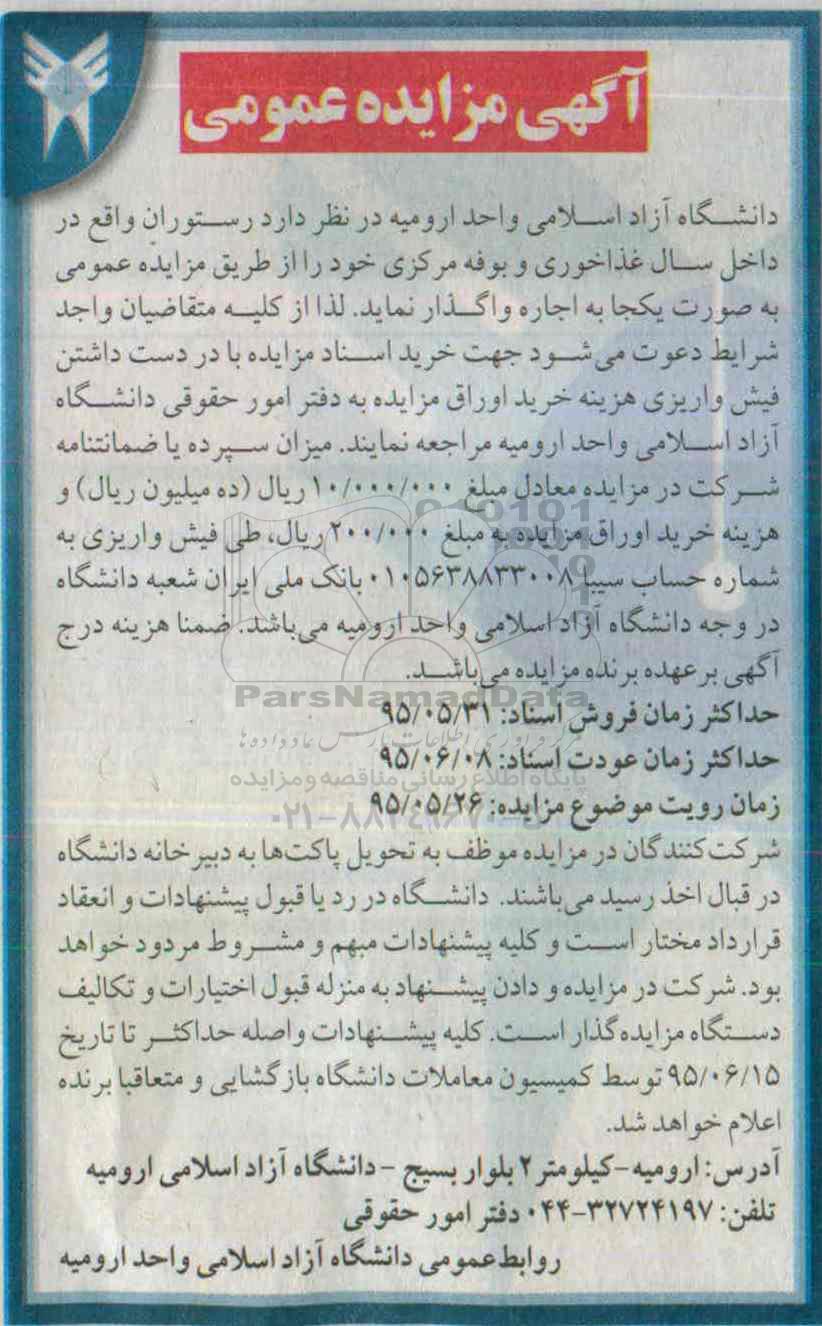 آگهی مزایده عمومی
دانشگاه آزاد اسلامی واحد ارومیه در نظر دارد رستوران واقع در
داخل سال غذاخوری و بوفه مرکزی خود را از طریق مزایده عمومی
به صورت یکجا به اجاره واگذار نماید. لذا از کلیه متقاضیان واجد
شرایط دعوت می‌شود جهت خرید اسناد مزایده با در دست داشتن
فیش واریزی هزینه خرید اوراق مزایده به دفتر امور حقوقی دانشگاه
آزاد اسلامی واحد ارومیه مراجعه نمایند. میزان سپرده یا ضمانتنامه
شرکت در مزایده معادل مبلغ ۱۰/۰۰۰/۰۰۰ ریال (ده میلیون ریال) و
هزینه خرید اوراق مزایده به مبلغ ۲۰۰/۰۰۰ ریال، طی فیش واریزی به
شماره حساب سیبا ۰۱۰۵۶۳۸۸۳۳۰۰۸ بانک ملی ایران شعبه دانشگاه
در وجه دانشگاه آزاد اسلامی واحد ارومیه می‌باشد. ضمنا هزینه درج
آگهی بر عهده برنده مزایده می‌باشد.
ParsNamadData
حداکثر زمان فروش اسناد: ۹۵/۰۵/۳۱
حداکثر زمان عودت اسناد: ۹۵/۰۶/۰۸
پایگاه اطلاع رسانی مناقصه و مزایده
زمان رویت موضوع مزایده: ۹۵/۰۵/۲۶
شرکت‌کنندگان در مزایده موظف به تحویل پاکت‌ها به دبیرخانه دانشگاه
در قبال اخذ رسید می‌باشند. دانشگاه در رد یا قبول پیشنهادات و انعقاد
قرارداد مختار است و کلیه پیشنهادات مبهم و مشروط مردود خواهد
بود. شرکت در مزایده و دادن پیشنهاد به منزله قبول اختیارات و تکالیف
دستگاه مزایده‌گذار است. کلیه پیشنهادات واصله حداکثر تا تاریخ
۹۵/۰۶/۱۵ توسط کمیسیون معاملات دانشگاه بازگشایی و متعاقبا برنده
اعلام خواهد شد.
آدرس: ارومیه-کیلومتر ۲ بلوار بسیج -دانشگاه آزاد اسلامی ارومیه
تلفن: ۰۴۴-۳۲۷۲۴۱۹۷ دفتر امور حقوقی
روابط‌عمومی دانشگاه آزاد اسلامی واحد ارومیه